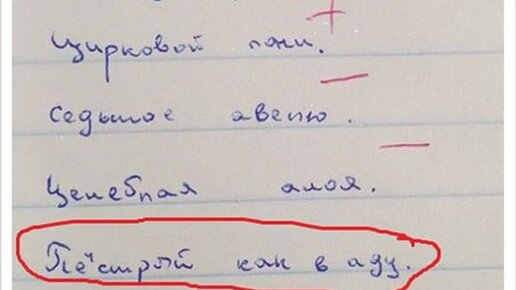 Цирковой пони.
Седьмое авеню.
Целебная алоя.
Пёстрый как в аду.